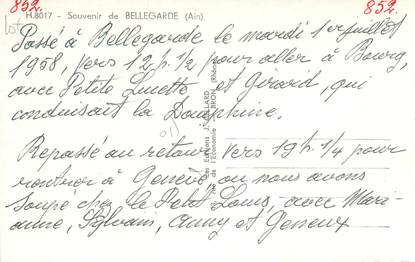 852. 852.
H.8017 - Souvenir de BELLEGARDE (Ain)
Passé à Bellegarde le mardi 1er juillet
1958, vers 12 h. 1/2 pour aller à Bourg,
avec Petite Lucette et Girard, qui
conduisait la Dauphine.
Repassé au retour vers 19 h. 1/4 pour
rentrer à Genève, où nous avons
soupé chez le Petit Louis, avec Mari-
anne, Sylvain, Anny et Geneux